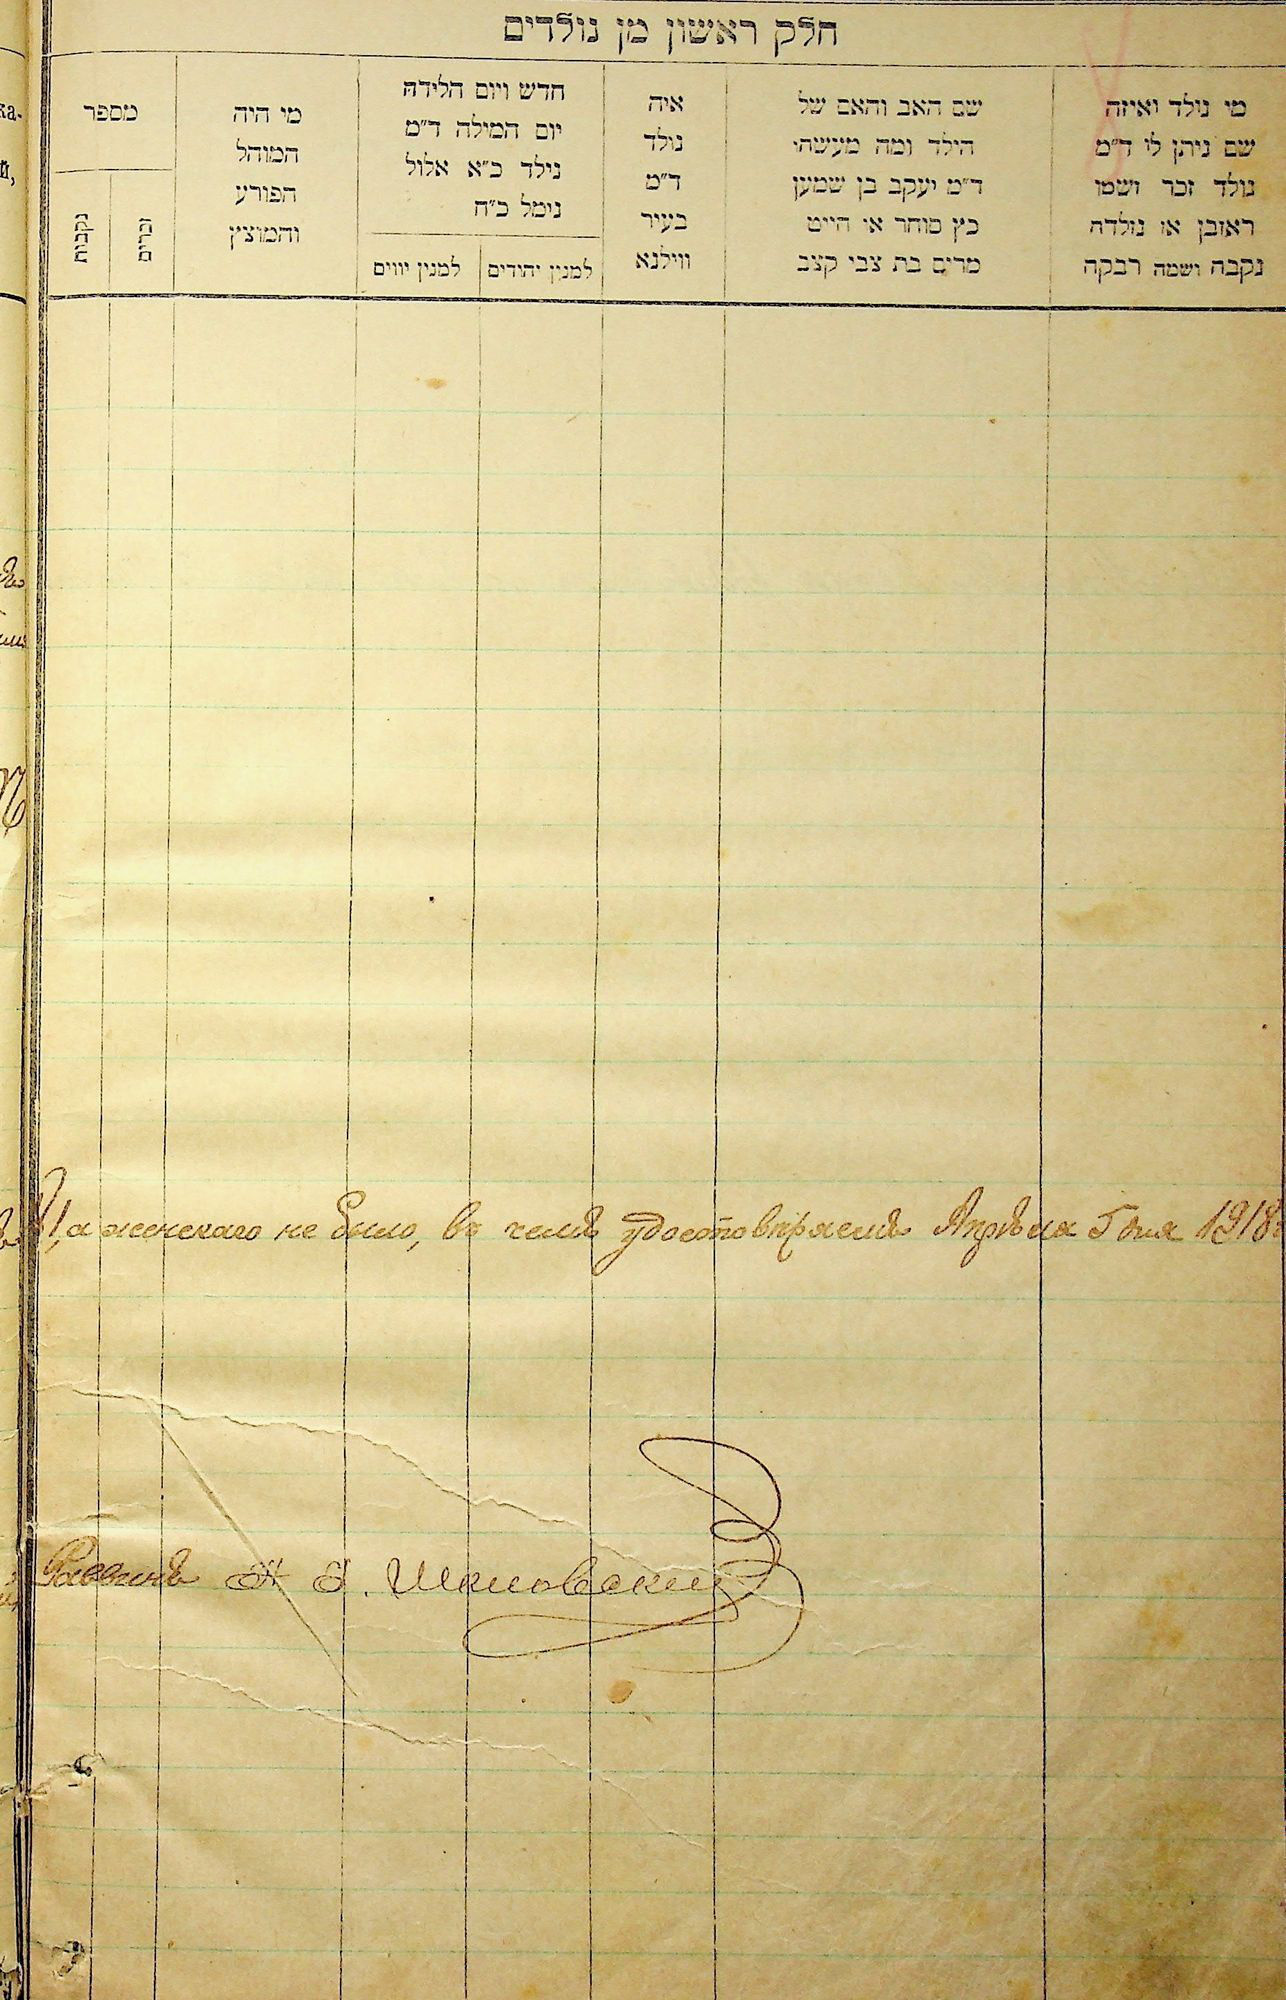 חלק ראשון מן נולדים
מי נולד ואיזה
שם ניתן לו ד"מ
נולד זכר ושמו
ראובן או נולדה
נקבה ושמה רבקה
שם האב והאם של
הילד ומה מעשהו
ד"מ יעקב בן שמעון
כץ סוחר או חייט
מרים בת צבי קצב
איה
נולד
ד"מ
בעיר
ווילנא
חדש ויום הלידה
יום המילה ד"מ
נילד כ"א אלול
נימל כ"ח
למנין יהודים
למנין יווים
מי היה
המוהל
הפורע
והמוצץ
מספר
זכרים
נקבות
а женскаго не было, въ чемъ удостовѣряемъ Апрѣля 5 дня 1918
Раввинъ Шкловский